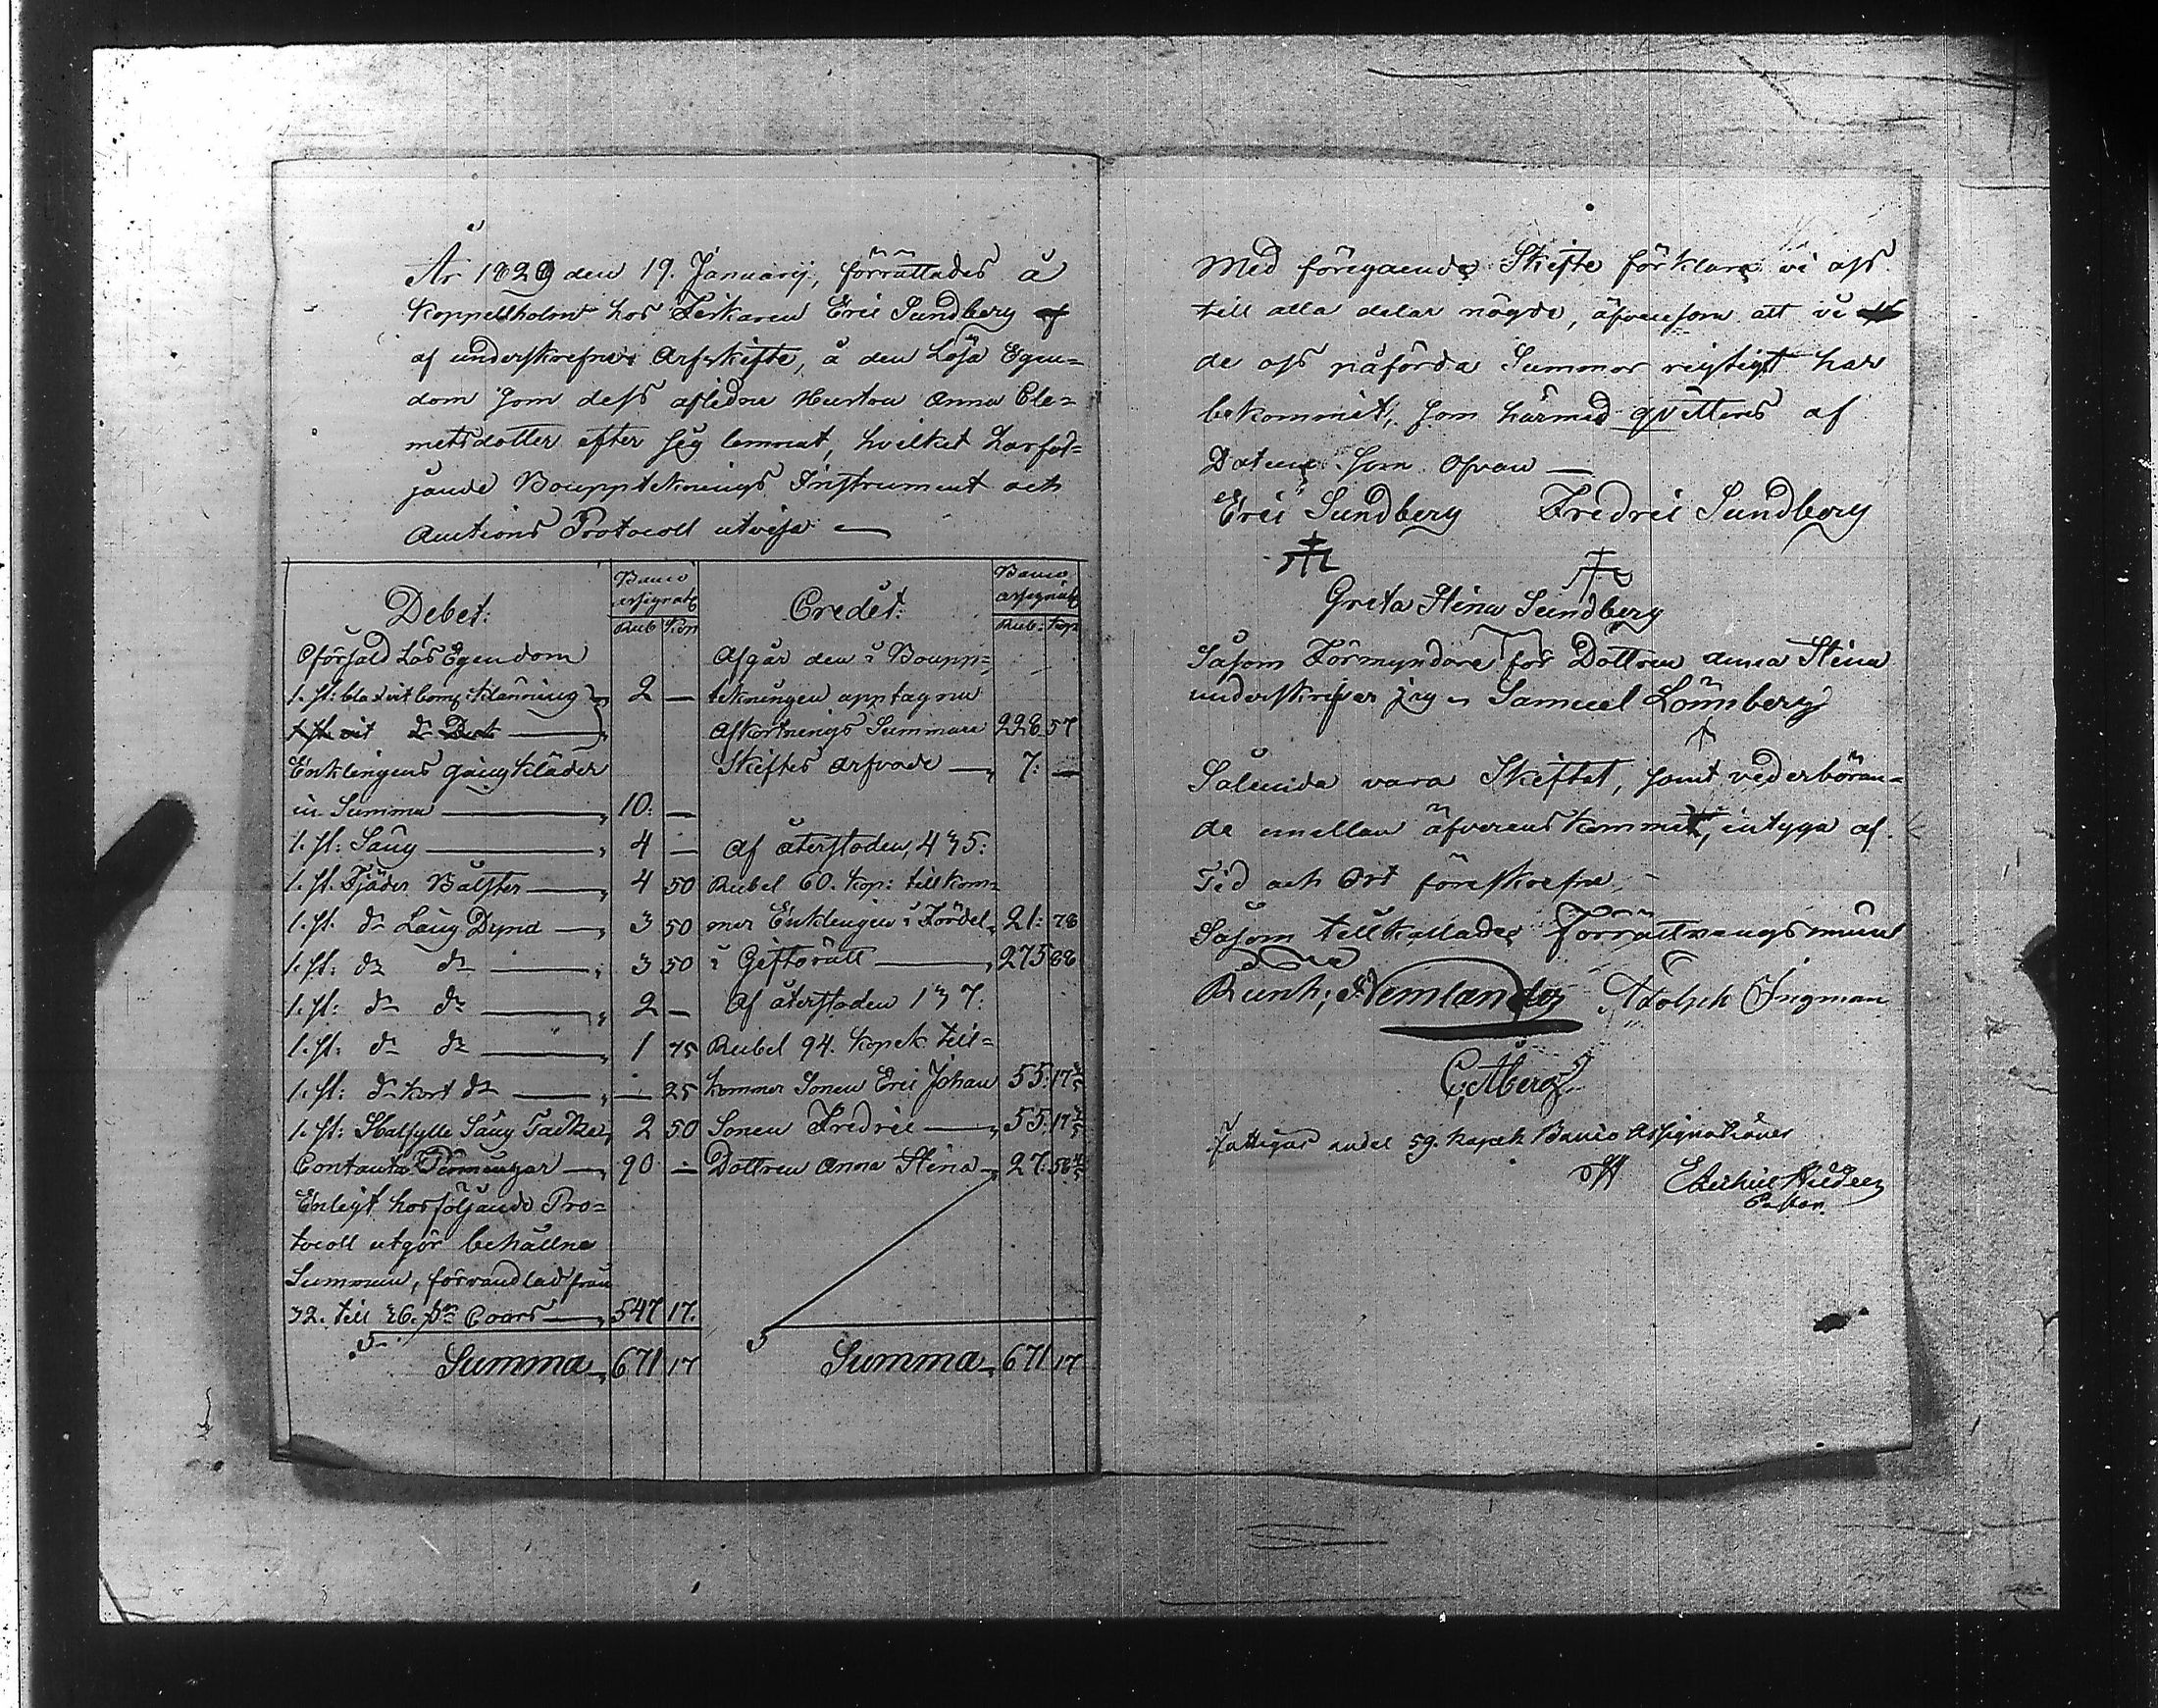 År 1829 den 19. Januarij, förrättades å
Koppelholm hos Fiskaren Eric Sundberg af
af underskrefne Arfskifte, å den Lösa Egen=
dom som dess aflidne Hustru Anna Cle=
metsdotter efter sig lemnat, hvilket härföl=
jande Bouppteknings Instrument och
Auctions Protocoll utvisa —
Debet:
Banco
Assignats
Rub Kop
Oförsåld Lös Egendom
1. st: bla d vit klänning 2 —
1 st vit do Do —
Enklingens gångkläder
in Summa — 10: —
1. st: Säng — 4 —
1. st. Fjäder Bålster — 4 50
1. st. do Säng Dyna — 3 50
1. st: do do — 3 50
1. st: do do — 2 —
1. st: do do — 1 75
1. st: do kort do — — 25
1. st: Halfylle Säng Täcke 2 50
Contanta Penningar — 90 —
Enligt härföljande Pro=
tocoll utgör behållne
Summan, förvandlad från
32. till 26. pr Cours — 547 17.
Summa 671 17
Credit:
Banco
Assignats
Rub. Kop
Afgår den i Boupp=
tekningen upptagna
Afkortnings Summan 228 57
Skiftes arfvode — 7: —
Af återstoden, 435:
Rubel 60. Kop: tillkom=
mer Enklingen i Fördel 21: 78
i Giftorätt — 275 88
Af återstoden 137:
Rubel 94. Kopek till=
kommer Sonen Eric Johan 55: 17 3/5
Sonen Fredric — 55: 17 3/5
Dottren Anna Stina 27: 58 4/5
Summa 671 17
Med föregående Skifte förklara vi oss
till alla delar nögde, äfvensom att vi
de oss påförda Summor rigtigt har
bekommit, som härmed qvitteras af
Datum som ofvan —
Eric Sundberg Fredric Sundberg
Greta Stina Sundberg
Såsom Förmyndare för Dottren Anna Stina
underskrifver jag Samuel Lönnberg
Sålunda vara Skiftat, samt vederböran=
de emellan öfverens kommit, intyga af
Tid och Ort föreskrefne,
Såsom tillkallade Förrättningsmän
Adolph Ingman
C. Åberg
Fattigas andel 59. kopek Banco Assignationer
Pastor.